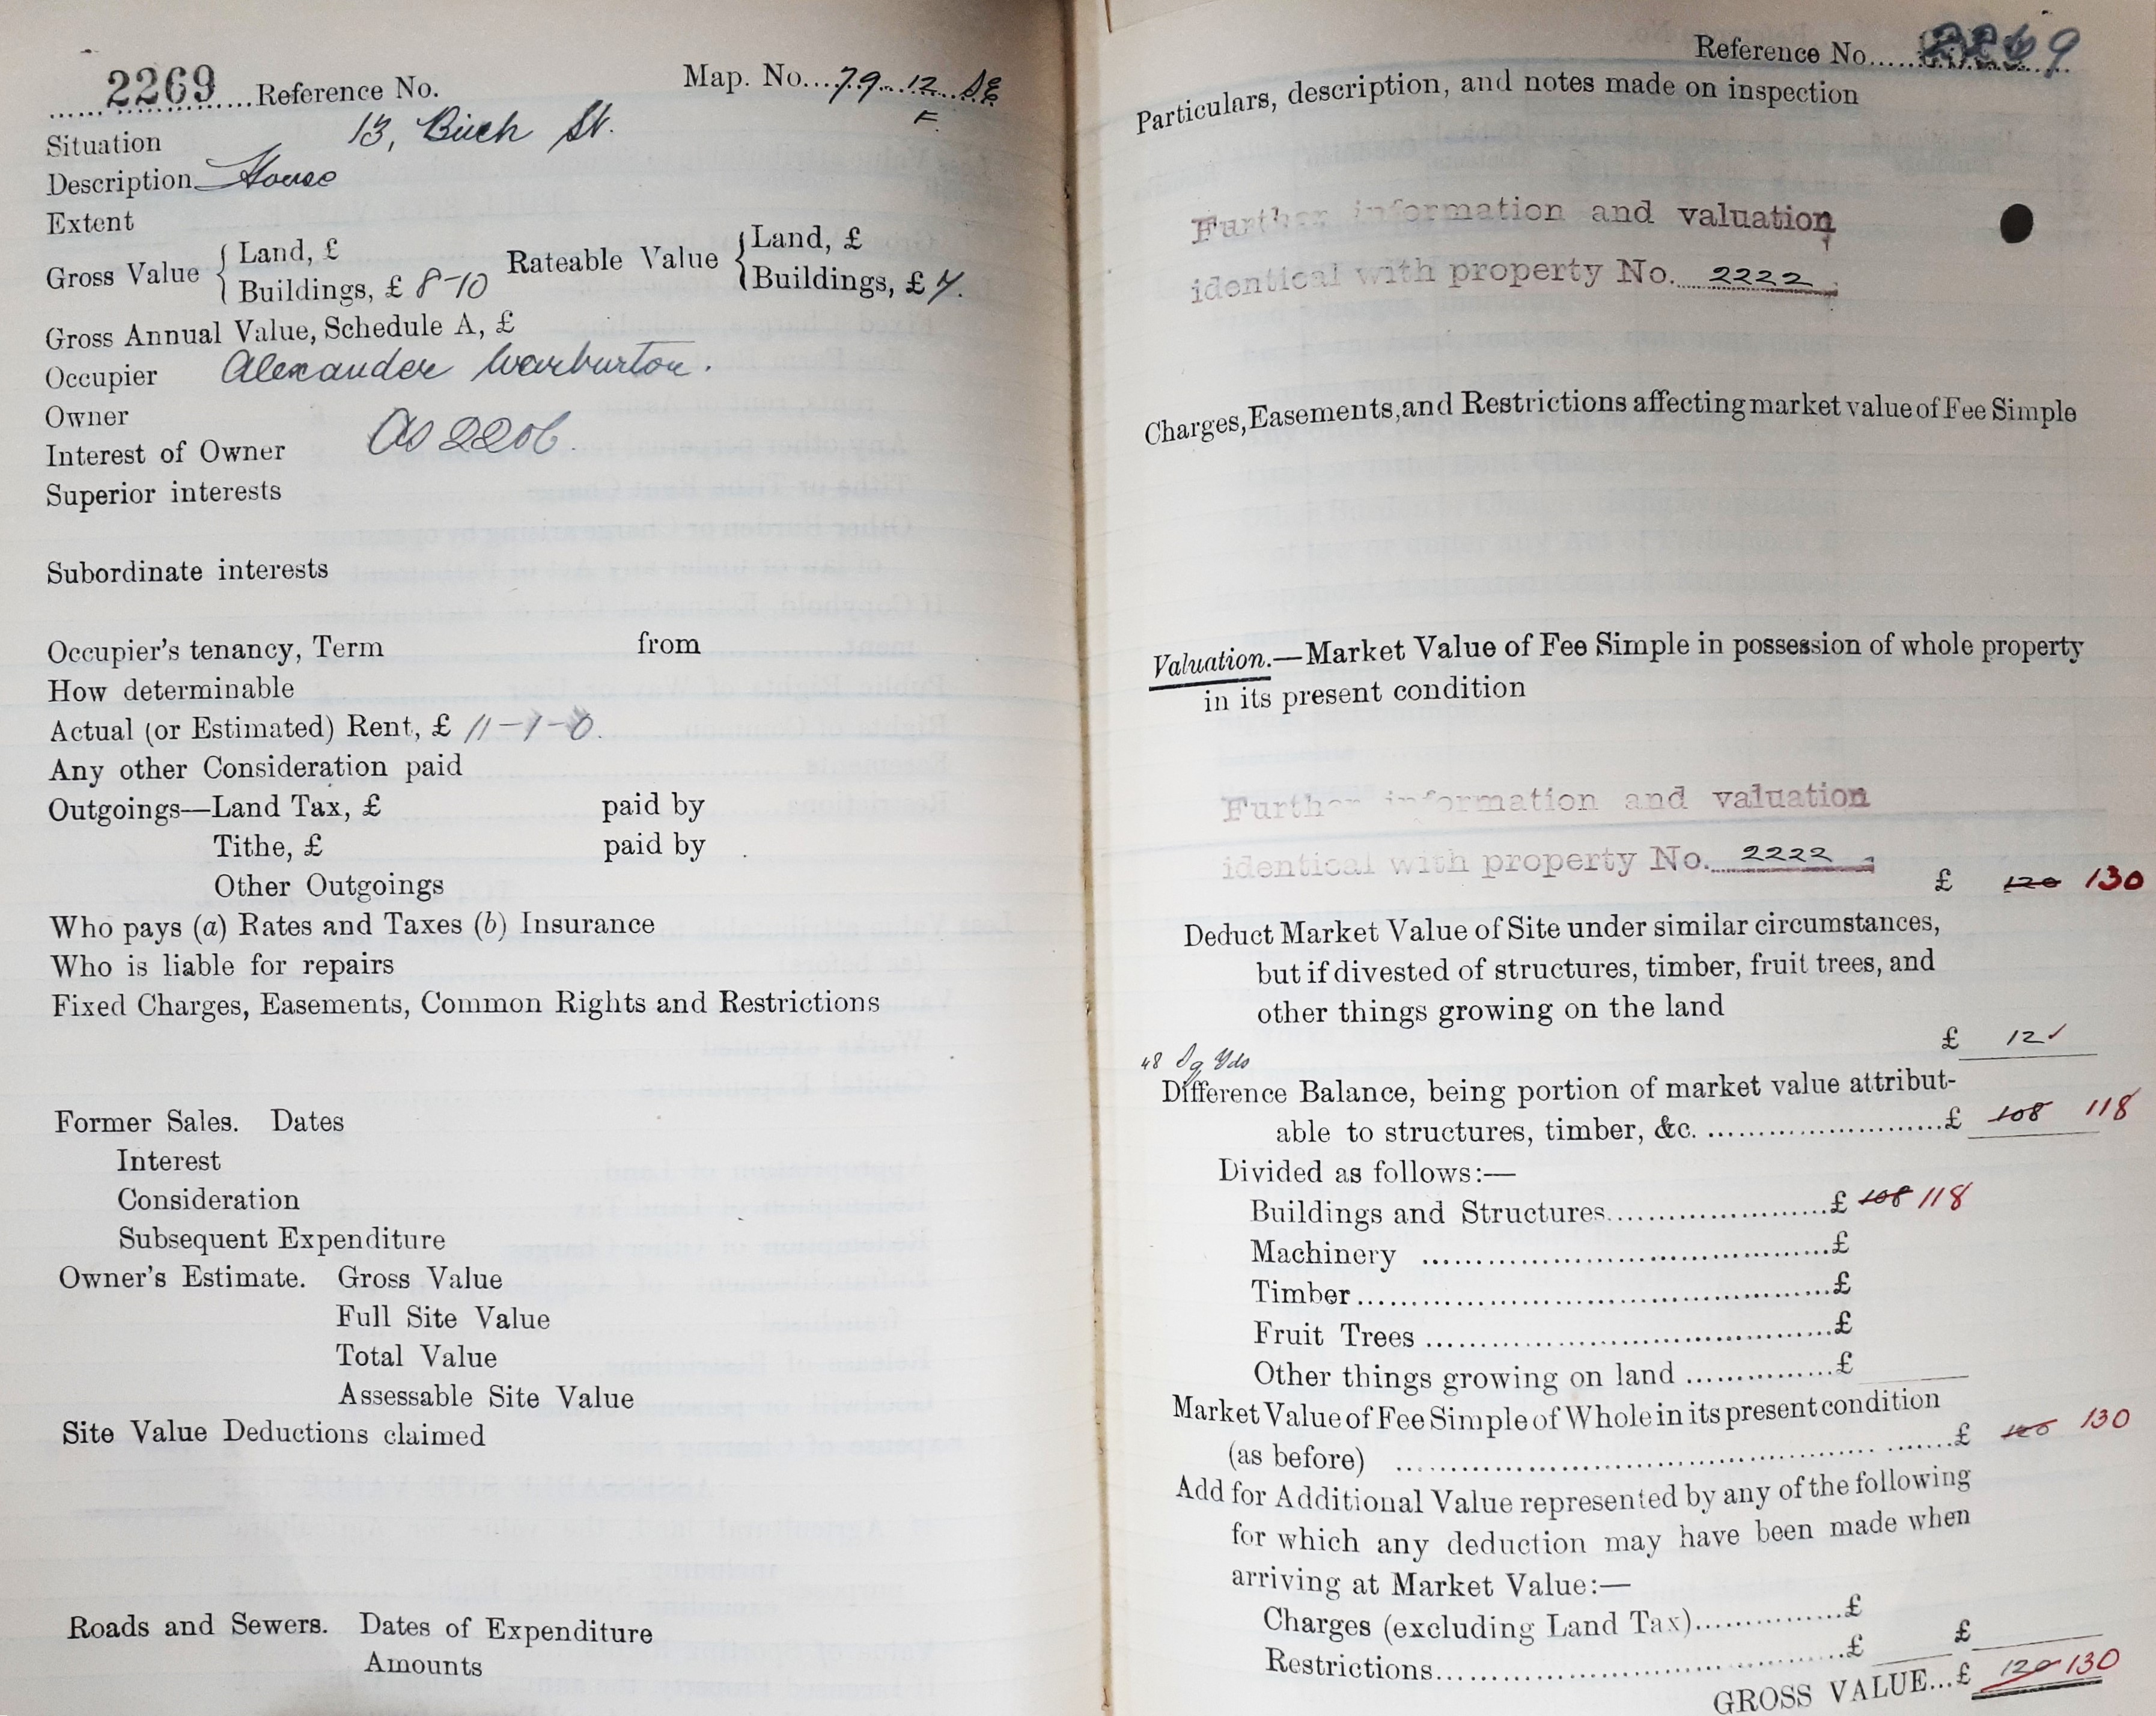 2269 Reference No. Map. No. 79.12 SE
F.
Situation 13, Birch St.
Description House
Extent
Gross Value { Land, £ Rateable Value { Land, £
Buildings, £ 8-10 Buildings, £ 7.
Gross Annual Value, Schedule A, £
Occupier Alexander Warburton.
Owner
Interest of Owner As 2206.
Superior interests
Subordinate interests
Occupier's tenancy, Term from
How determinable
Actual (or Estimated) Rent, £ 11-1-0.
Any other Consideration paid
Outgoings—Land Tax, £ paid by
Tithe, £ paid by
Other Outgoings
Who pays (a) Rates and Taxes (b) Insurance
Who is liable for repairs
Fixed Charges, Easements, Common Rights and Restrictions
Former Sales. Dates
Interest
Consideration
Subsequent Expenditure
Owner's Estimate. Gross Value
Full Site Value
Total Value
Assessable Site Value
Site Value Deductions claimed
Roads and Sewers. Dates of Expenditure
Amounts
Reference No. 2269
Particulars, description, and notes made on inspection
Further information and valuation
identical with property No. 2222
Charges, Easements, and Restrictions affecting market value of Fee Simple
Valuation.—Market Value of Fee Simple in possession of whole property
in its present condition
Further information and valuation
identical with property No. 2222
£ 120 130
Deduct Market Value of Site under similar circumstances,
but if divested of structures, timber, fruit trees, and
other things growing on the land
£ 12 ✓
48 Sq Yds
Difference Balance, being portion of market value attribut-
able to structures, timber, &c. £ 108 118
Divided as follows:—
Buildings and Structures £ 108 118
Machinery £
Timber £
Fruit Trees £
Other things growing on land £
Market Value of Fee Simple of Whole in its present condition
(as before) £ 120 130
Add for Additional Value represented by any of the following
for which any deduction may have been made when
arriving at Market Value:—
Charges (excluding Land Tax) £
Restrictions £ £
GROSS VALUE... £ 120 130